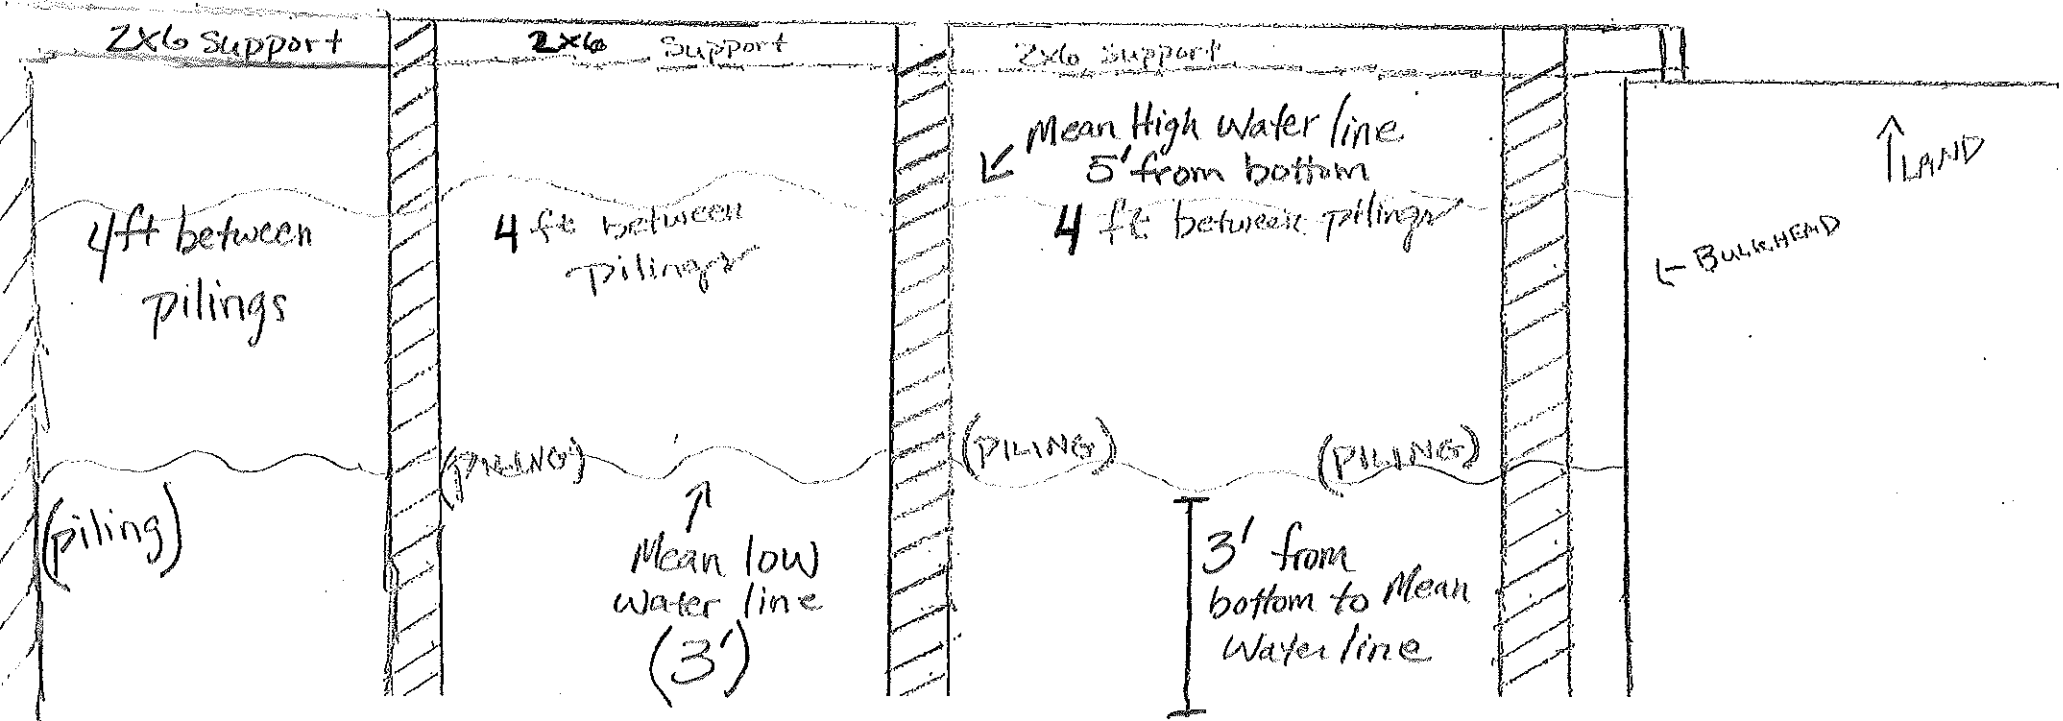 2x6 Support
2x6 Support
2x6 Support
Mean High Water line
5' from bottom
4 ft between pilings
4ft between
pilings
4 ft between
pilings
↑ LAND
← BULKHEAD
(piling)
(PILING)
(PILING)
(PILING)
Mean low
Water line
(3')
3' from
bottom to Mean
Water line